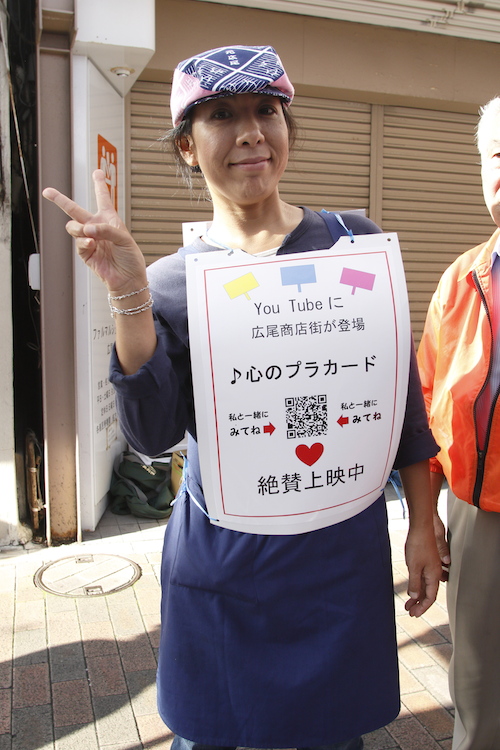 You Tubeに
広尾商店街が登場
♪心のプラカード
私と一緒に
みてね
私と一緒に
みてね
絶賛上映中